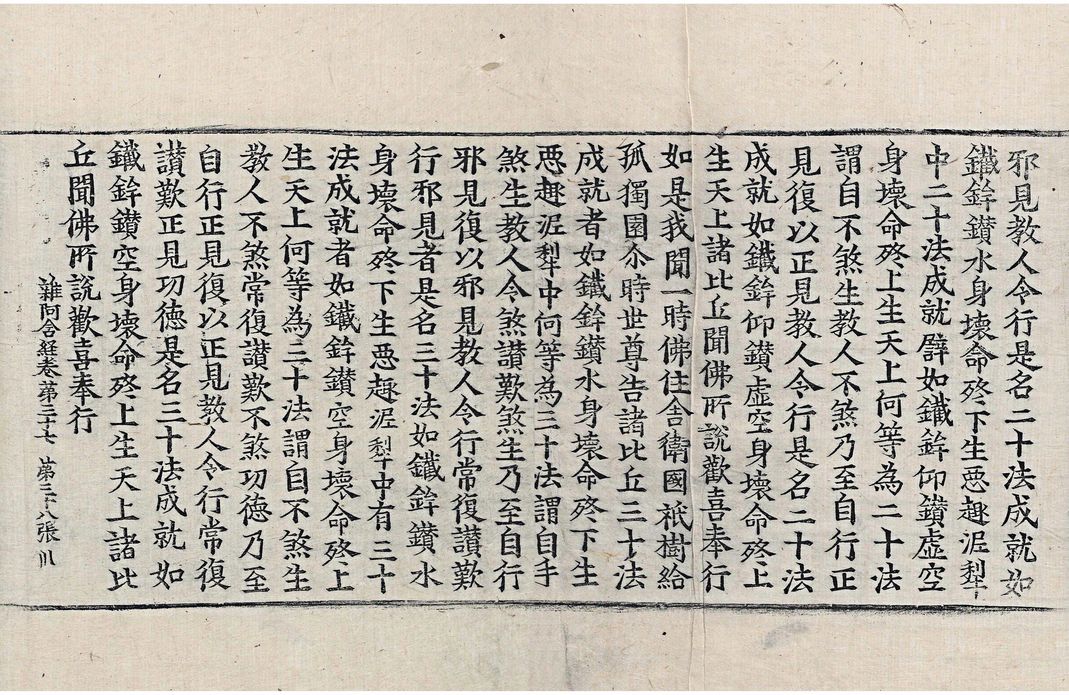 邪見教人令行是名二十法成就如
鐵鉾鑽水身壞命終下生惡趣泥犁
中二十法成就譬如鐵鉾仰鑽虛空
身壞命終上生天上何等為二十法
謂自不煞生教人不煞乃至自行正
見復以正見教人令行是名二十法
成就如鐵鉾仰鑽虛空身壞命終上
生天上諸比丘聞佛所說歡喜奉行
如是我聞一時佛住舍衛國祇樹給
孤獨園尒時世尊告諸比丘三十法
成就者如鐵鉾鑽水身壞命終下生
惡趣泥犁中何等為三十法謂自手
煞生教人令煞讃歎煞生乃至自行
邪見復以邪見教人令行常復讃歎
行邪見者是名三十法如鐵鉾鑽水
身壞命終下生惡趣泥犁中有三十
法成就者如鐵鉾鑽空身壞命終上
生天上何等為三十法謂自不煞生
教人不煞常復讃歎不煞功德乃至
自行正見復以正見教人令行常復
讃歎正見功德是名三十法成就如
鐵鉾鑽空身壞命終上生天上諸比
丘聞佛所說歡喜奉行
雜阿含經卷第三十七 第三十八張 川